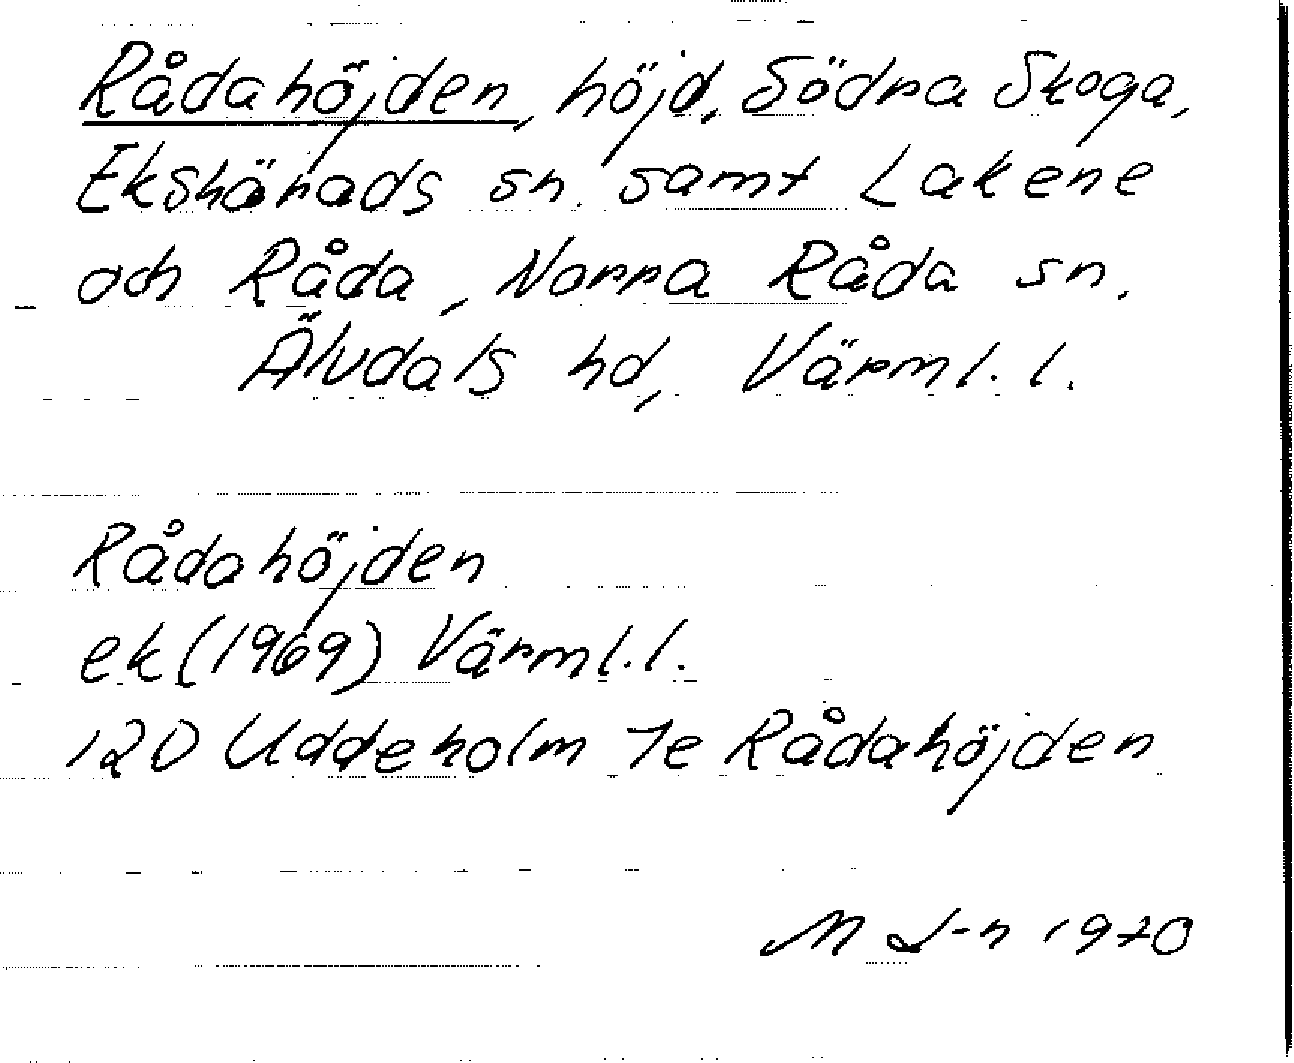 Rådahöjden, höjd, Södra Skoga,
Ekshärads sn. samt Lakene
och Råda, Norra Råda sn.
Älvdals hd, Värml. l.
Rådahöjden
ek (1969) Värml. l.
12D Uddeholm 7e Rådahöjden
1970